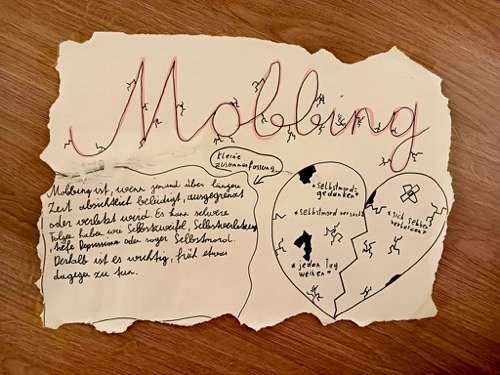 Mobbing
kleine
zusammenfassung
Mobbing ist, wenn jemand über längere
Zeit absichtlich beleidigt, ausgegrenzt
oder verletzt wird. Es kann schwere
Folgen haben wie Selbstzweifel, Selbstverletzung
tiefe Depressionen oder sogar Selbstmord.
Deshalb ist es wichtig, früh etwas
dagegen zu tun.
*selbstmords
gedanken*
*selbstmord versuch*
*jeden Tag
weinen*
*sich selber
verletzen*